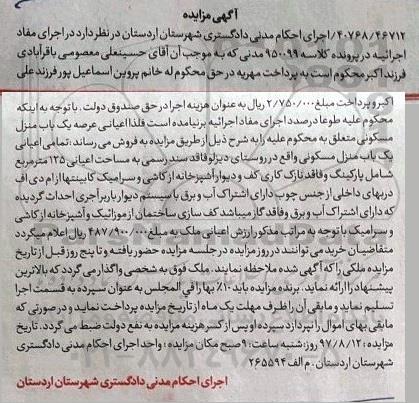 آگهی مزایده
۴۰۷۶۸/۴۶۷۱۲/ اجرای احکام مدنی دادگستری شهرستان اردستان در نظر دارد در اجرای مفاد
اجرائیه در پرونده کلاسه ۹۵۰۰۹۹ مدنی که به موجب آن آقای حسینعلی معصومی باقرآبادی
فرزند اکبر محکوم است به پرداخت مهریه در حق محکوم له خانم پروین اسماعیل پور فرزند علی
اکبر و پرداخت مبلغ ۲/۷۵۰/۰۰۰ ریال به عنوان هزینه اجرا در حق صندوق دولت . با توجه به اینکه
محکوم علیه طوعا در صدد اجرای مفاد اجرائیه برنیامده است فلذا اعیانی عرصه یک باب منزل
مسکونی متعلق به محکوم علیه را به شرح ذیل از طریق مزایده به فروش می رساند : تمامی اعیانی
یک باب منزل مسکونی واقع در روستای دیزلو فاقد سند رسمی به مساحت اعیانی ۱۲۵ مترمربع
شامل پارکینگ و فاقد نازک کاری کف و دیوار آشپزخانه از کاشی و سرامیک کابینتها از ام دی اف
دربهای داخلی از جنس چوب دارای اشتراک آب و برق با سیستم دیوار باربر آجری احداث گردیده
که دارای اشتراک آب و برق و فاقد گاز میباشد کف سازی ساختمان از موزائیک و آشپزخانه از کاشی
و سرامیک با توجه به مراتب مذکور ارزش اعیانی ملک به مبلغ ۴۸۷/۹۰۰/۰۰۰ ریال اعلام میگردد
متقاضیان خرید می توانند در روز مزایده در جلسه مزایده حضور یافته و تا پنج روز قبل از تاریخ
مزایده ملکی را که آگهی شده ملاحظه نمایند. ملک فوق به شخصی واگذار می گردد که بالاترین
پیشنهاد را ارائه نماید. برنده مزایده باید ۱۰٪ بها را فی المجلس به عنوان سپرده به قسمت اجرا
تسلیم نماید و مابقی آن را ظرف مهلت یک ماه از تاریخ مزایده پرداخت نمایند و در صورتی که
مابقی بهای اموال را نپردازد سپرده او پس از کسر هزینه مزایده به نفع دولت ضبط می گردد. تاریخ
مزایده : ۹۷/۸/۱۲ روز : شنبه ساعت : ۹ صبح مکان مزایده : واحد اجرای احکام مدنی دادگستری
شهرستان اردستان . م الف ۲۶۵۵۹۴
اجرای احکام مدنی دادگستری شهرستان اردستان